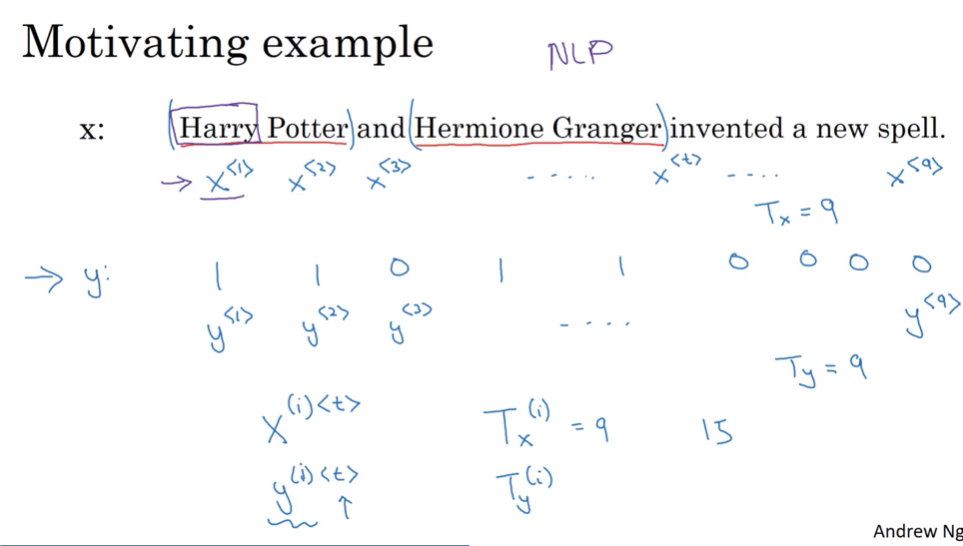 Motivating example NLP
x: Harry Potter and Hermione Granger invented a new spell.
→ x^<1> x^<2> x^<3> ..... x^<t> .... x^<9>
T_x = 9
→ y: 1 1 0 1 1 0 0 0 0
y^<1> y^<2> y^<3> .... y^<9>
T_y = 9
X^(i)<t> T_x^(i) = 9 15
y^(i)<t> T_y^(i)
Andrew Ng